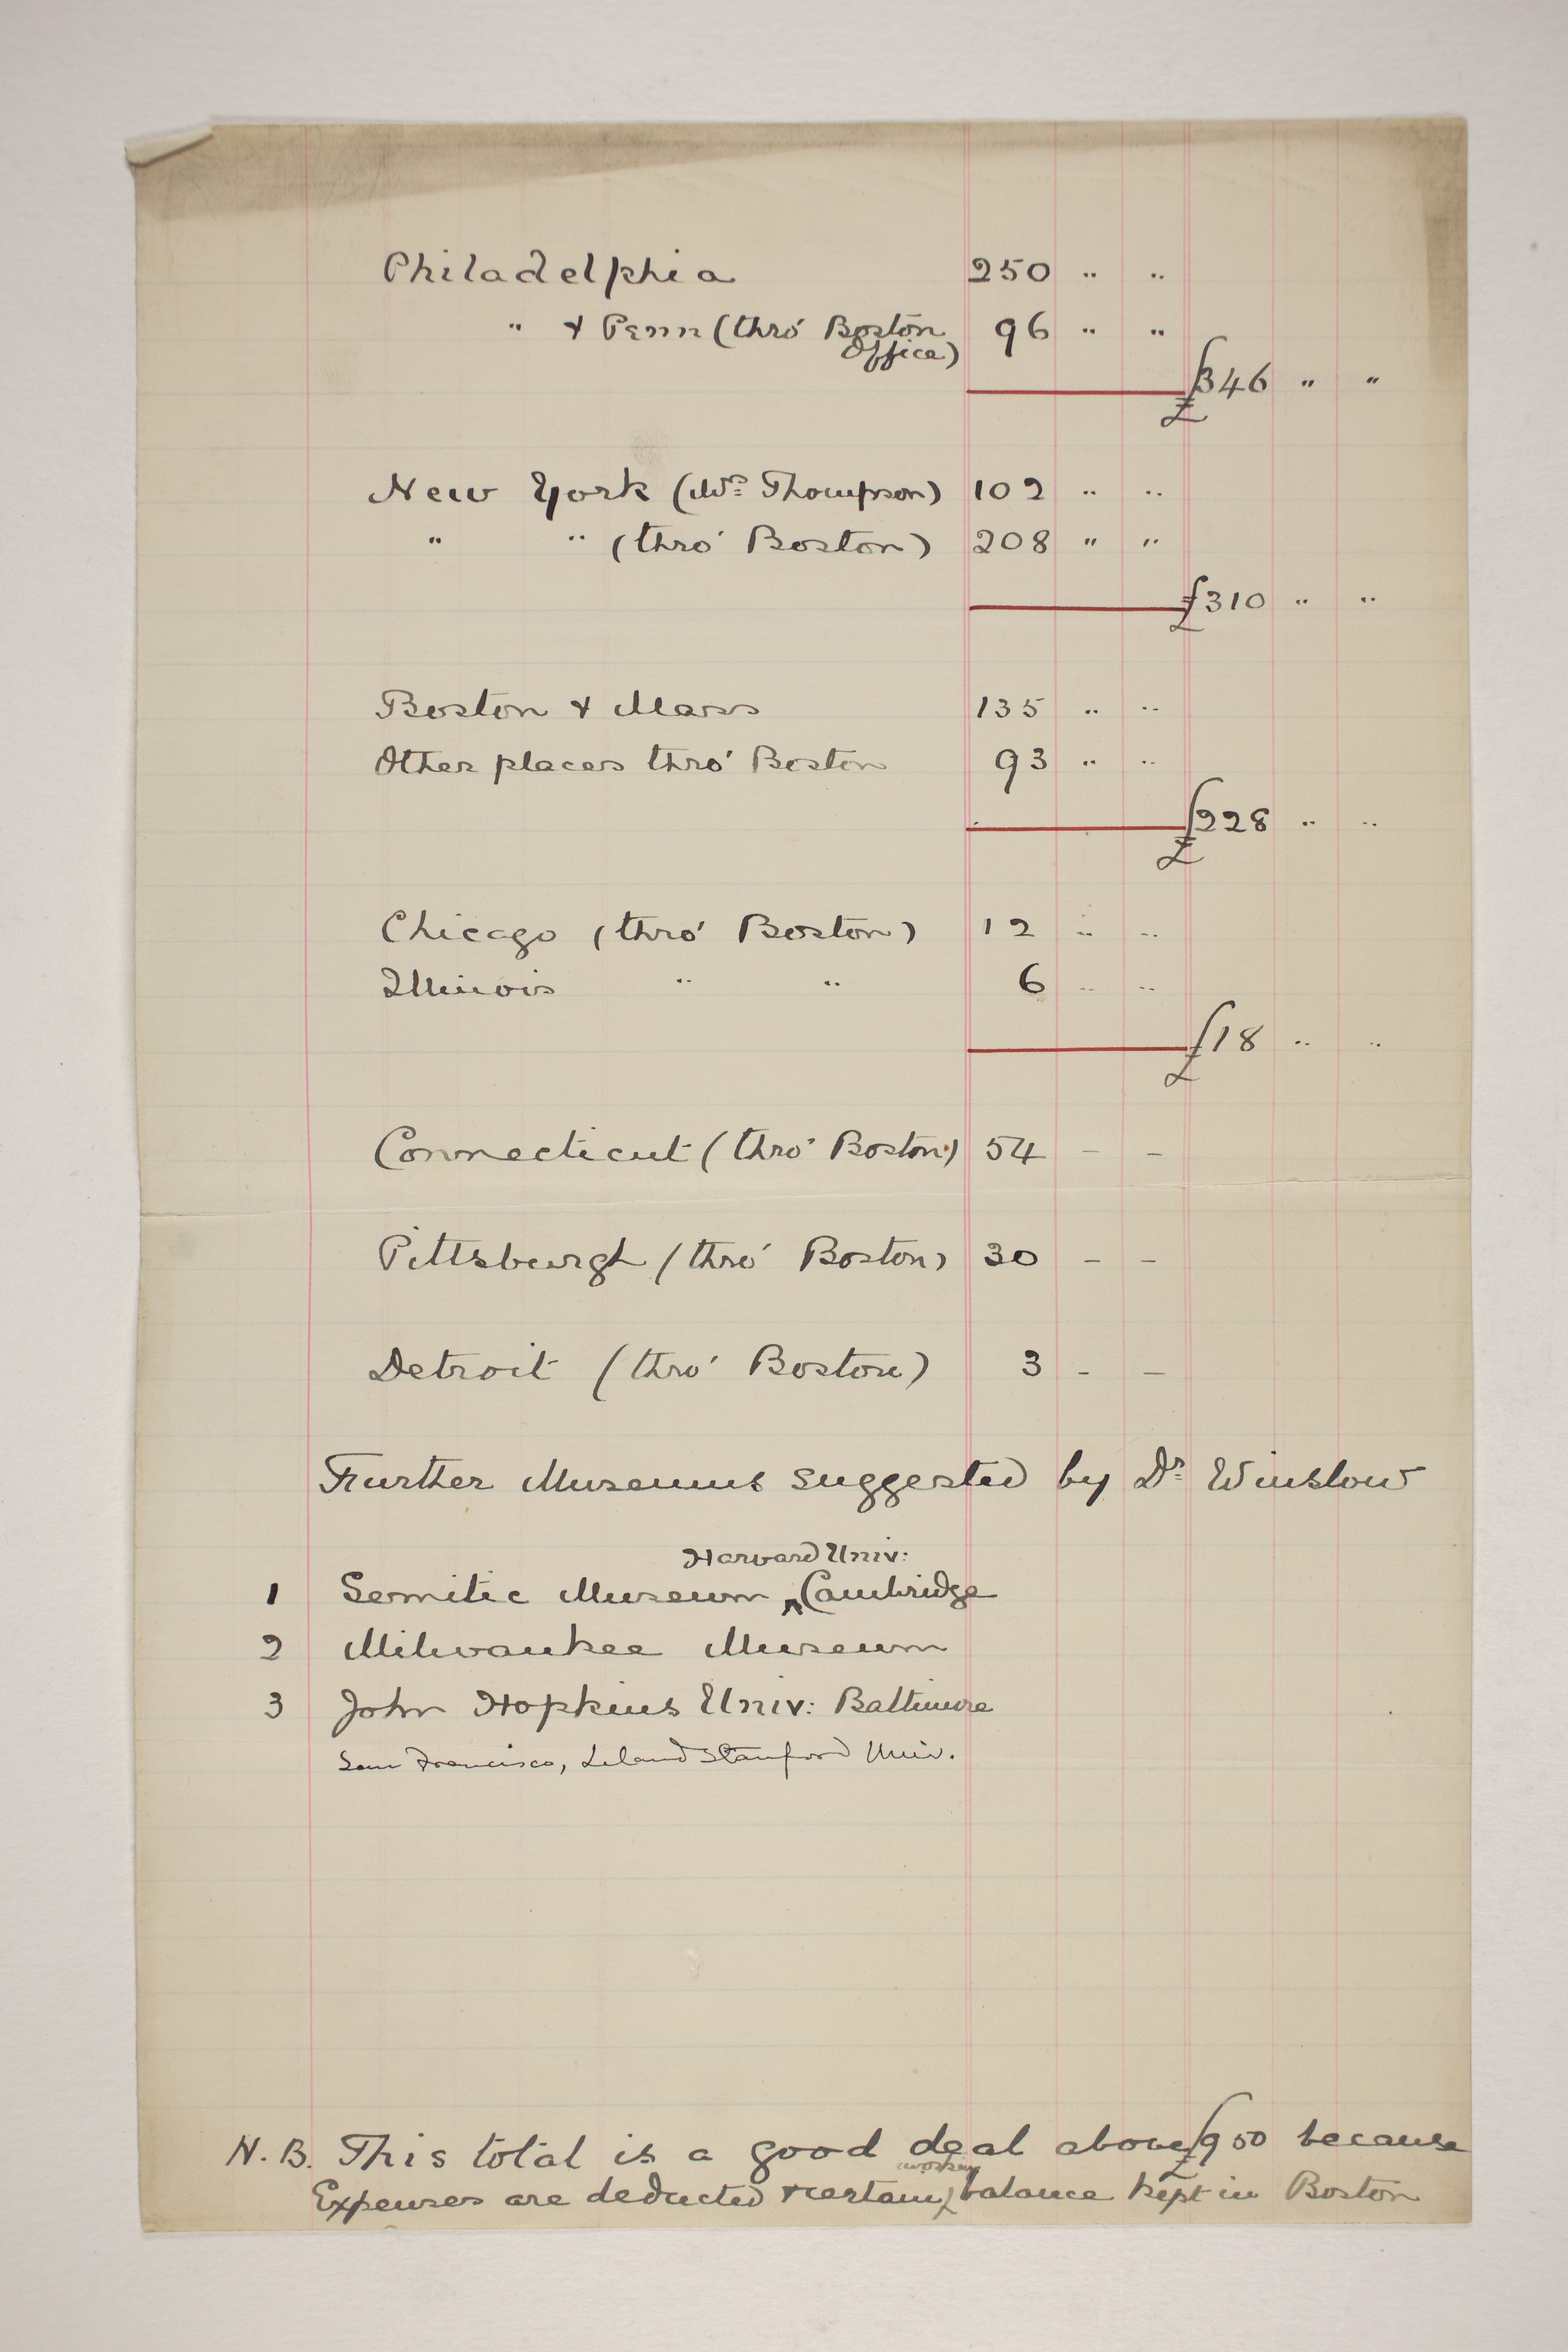 Philadelphia 250 " "
" & Penn (thro' Boston Office) 96 " "
£346 " "
New York (Mrs Thompson) 102 " "
" " (thro' Boston) 208 " "
£310 " "
Boston & Mass 135 " "
Other places thro' Boston 93 " "
£228 " "
Chicago (thro' Boston) 12 " "
Illinois " " 6 " "
£18 " "
Connecticut (thro' Boston) 54 – –
Pittsburgh (thro' Boston) 30 – –
Detroit (thro' Boston) 3 – –
Further Museums suggested by Dr Winslow
Harvard Univ:
1 Semitic Museum ^ Cambridge
2 Milwaukee Museum
3 John Hopkins Univ: Baltimore
San Francisco, Leland Stanford Univ.
N.B. This total is a good deal above £950 because
working
Expenses are deducted & certain balance kept in Boston